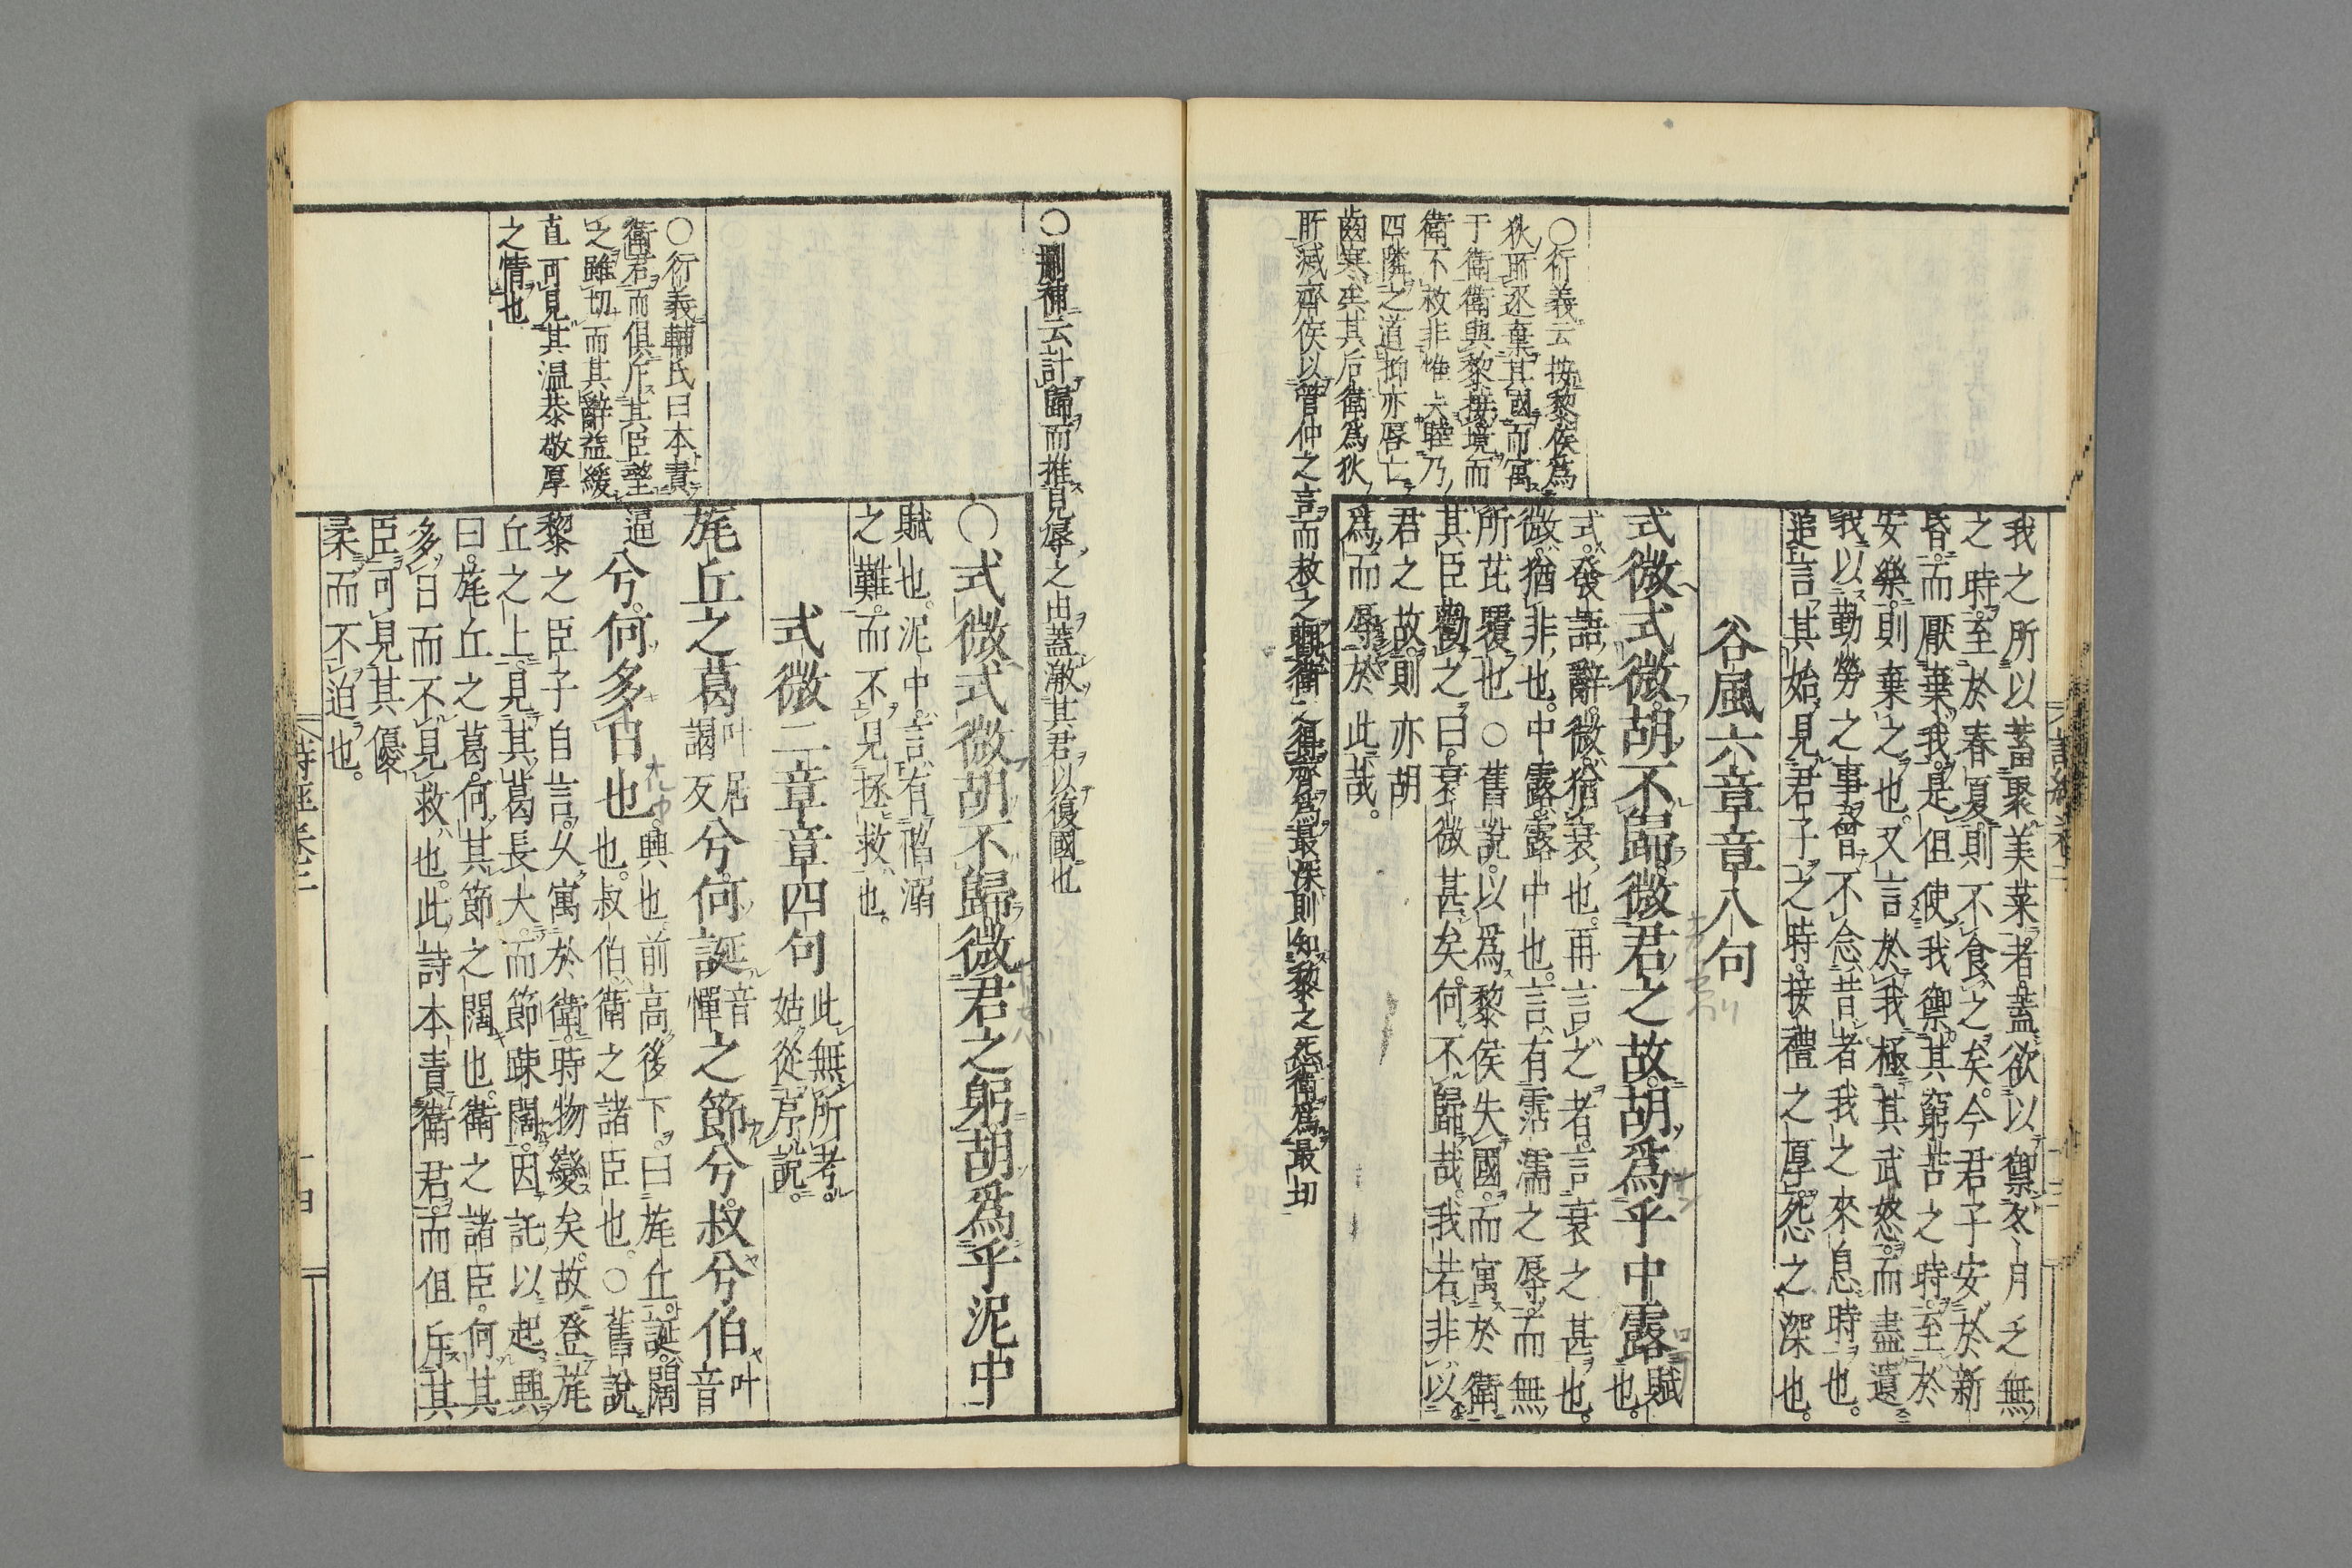 我之所以蓄聚美菜者。蓋欲以禦冬月乏無
之時。至於春夏。則不食之矣。今君子安於新
昏。而厭棄我。是但使我禦其窮苦之時。至於
安樂。則棄之也。又言於我極其武怒。而盡遺
我以勤勞之事。曾不念昔者我之來息時也。
追言其始見君子之時。接禮之厚。怨之深也。
谷風六章章八句
式微式微。胡不歸。微君之故。胡爲乎中露
賦
也。
式。發語辭。微。猶衰也。再言之者。言衰之甚也。
微。猶非也。中露。露中也。言有霑濡之辱。而無
所芘覆也○舊說。以爲黎侯失國。而寓於衛
其臣勸之曰。衰微甚矣。何不歸哉。我若非以
君之故。則亦胡
爲而辱於此哉。
○衍義云按黎侯爲
狄所逐棄其國而寓
于衛衛與黎接境而
衛不救非惟失睦乃
四隣之道抑亦唇亡
齒寒矣其后衛爲狄
所滅齊侯以管仲之言而救之觀衛之得齊爲最深則知黎之怨衛爲最切
○刪補云計歸而推見辱之由蓋激其君以復國也
○式微式微胡不歸微君之躬胡爲乎泥中
賦也。泥中。言有陷溺
之難。而不見拯救也。
式微二章章四句
此無所考。
姑從序說。
旄丘之葛
叶居
謁反
兮。何誕
音
憚
之節兮。叔兮伯
叶
音
逼
兮。何多日也
興也。前高後下。曰旄丘。誕。闊
也。叔伯。衛之諸臣也。○舊說
黎之臣子自言。久寓於衛。時物變矣。故登旄
丘之上。見其葛長大。而節疎闊。因託以起興
曰。旄丘之葛。何其節之闊也。衛之諸臣。何其
多日而不見救也。此詩本責衛君。而但斥其
臣。可見其優
柔而不迫也。
○衍義輔氏曰本責
衛君而俱斥其臣望
之雖切而其辭益緩
直可見其温恭敬厚
之情也
詩經卷二